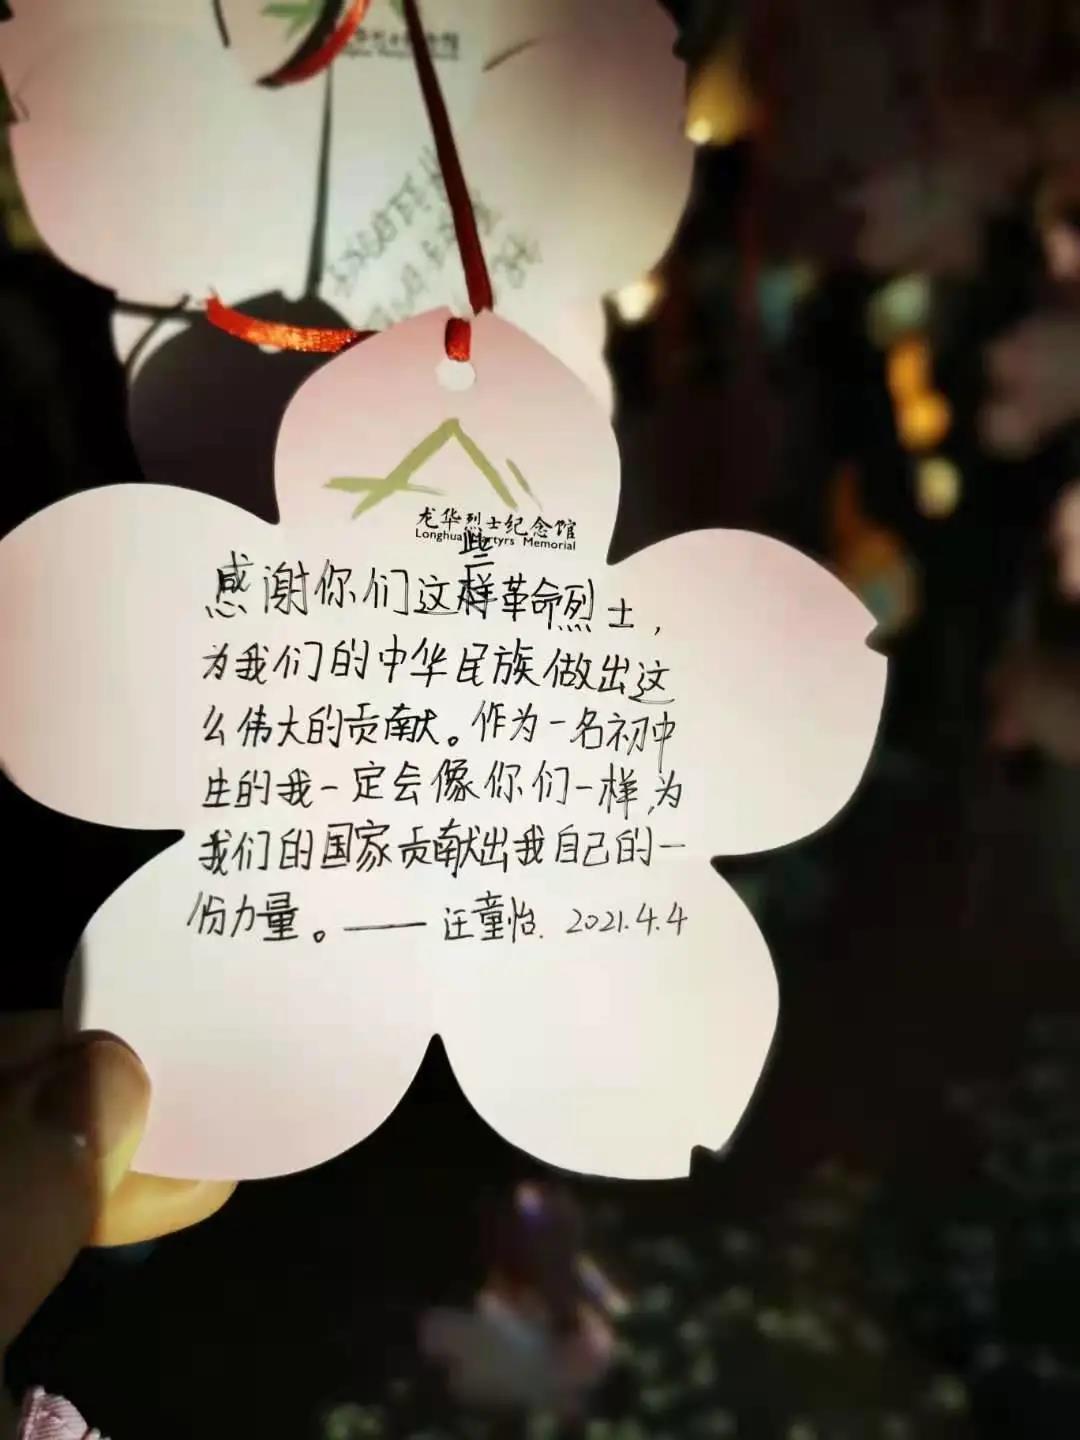 龙华烈士纪念馆
Longhua Martyrs Memorial
感谢你们这些革命烈士，
为我们的中华民族做出这
么伟大的贡献。作为一名初中
生的我一定会像你们一样，为
我们的国家贡献出我自己的一
份力量。——汪童怡. 2021.4.4